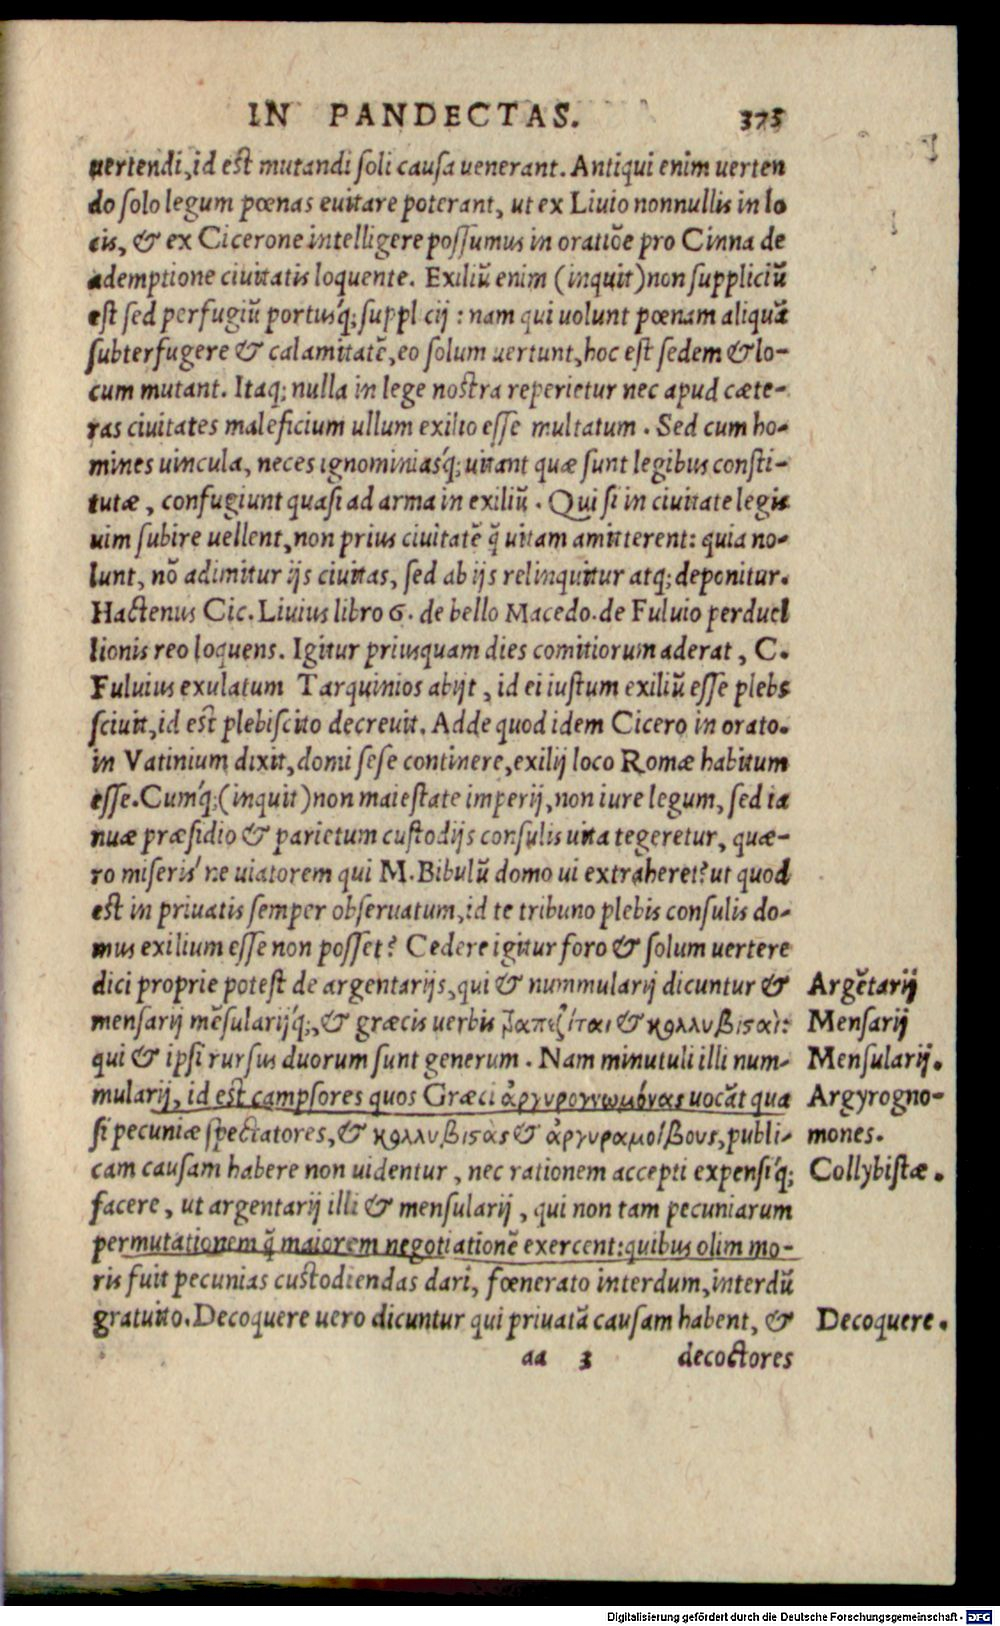 IN PANDECTAS. 375
uertendi, id est mutandi soli causa uenerant. Antiqui enim uerten
do solo legum pœnas euitare poterant, ut ex Liuio nonnullis in lo
cis, & ex Cicerone intelligere possumus in oratiōe pro Cinna de
ademptione ciuitatis loquente. Exiliũ enim (inquit) non suppliciũ
est sed perfugiũ portusq́; supplcij : nam qui uolunt pœnam aliquã
subterfugere & calamitatẽ, eo solum uertunt, hoc est sedem & lo-
cum mutant. Itaq; nulla in lege nostra reperietur nec apud cæte-
ras ciuitates maleficium ullum exilio esse multatum . Sed cum ho-
mines uincula, neces ignominiasq́; uitant quæ sunt legibus consti-
tutæ , confugiunt quasi ad arma in exiliũ . Qui si in ciuitate legis
uim subire uellent, non prius ciuitatẽ q̃ uitam amitterent: quia no-
lunt, nõ adimitur ijs ciuitas, sed ab ijs relinquitur atq; deponitur.
Hactenus Cic. Liuius libro 6. de bello Macedo. de Fuluio perduel
lionis reo loquens. Igitur priusquam dies comitiorum aderat , C.
Fuluius exulatum Tarquinios abijt , id ei iustum exiliũ esse plebs
sciuit, id est plebiscito decreuit. Adde quod idem Cicero in orato.
in Vatinium dixit, domi sese continere, exilij loco Romæ habitum
esse. Cumq́; (inquit) non maiestate imperij, non iure legum, sed ia
nuæ præsidio & parietum custodijs consulis uita tegeretur, quæ-
ro miseris ne uiatorem qui M. Bibulũ domo ui extraheret? ut quod
est in priuatis semper obseruatum, id te tribuno plebis consulis do-
mus exilium esse non posset? Cedere igitur foro & solum uertere
dici proprie potest de argentarijs, qui & nummularij dicuntur & Argẽtarij
mensarij mẽsularijq́;, & græcis uerbis τραπεζῖται & κολλυβισταὶ: Mensarij
qui & ipsi rursus duorum sunt generum . Nam minutuli illi num- Mensularij.
mularij, id est campsores quos Græci ἀργυρογνωμόνας uocãt qua Argyrogno-
si pecuniæ spectatores, & κολλυβιστὰς & ἀργυραμοίβους, publi- mones.
cam causam habere non uidentur , nec rationem accepti expensiq́; Collybistæ .
facere , ut argentarij illi & mensularij , qui non tam pecuniarum
permutationem q̃ maiorem negotiationẽ exercent: quibus olim mo-
ris fuit pecunias custodiendas dari, fœnerato interdum, interdũ
gratuito. Decoquere uero dicuntur qui priuatã causam habent, & Decoquere .
aa 3 decoctores
Digitalisierung gefördert durch die Deutsche Forschungsgemeinschaft - DFG